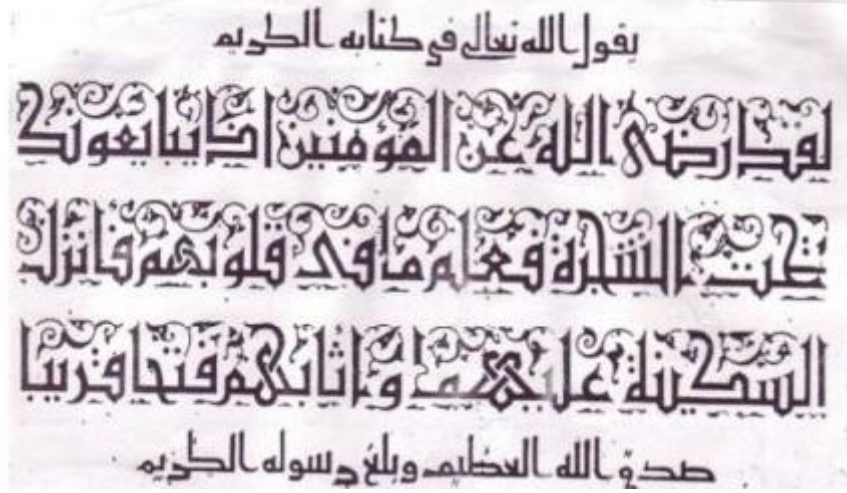 يقول الله تعالى في كتابه الكريم
لقد رضى الله عن المؤمنين اذ يبايعونك
تحت الشجرة فعلم ما فى قلوبهم فانزل
السكينة عليهم واثابهم فتحا قريبا
صدق الله العظيم وبلغ رسوله الكريم